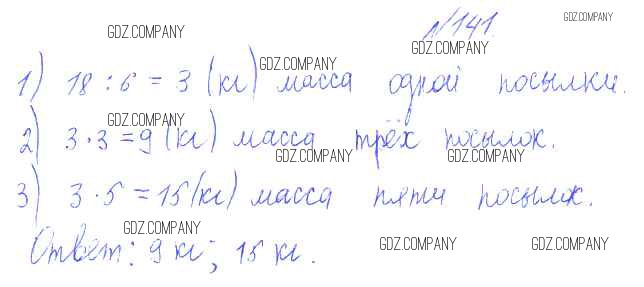 GDZ.COMPANY
№141.
GDZ.COMPANY GDZ.COMPANY
GDZ.COMPANY
1) 18 : 6 = 3 (кг) масса одной посылки.
GDZ.COMPANY
2) 3 · 3 = 9 (кг) масса трёх посылок.
GDZ.COMPANY GDZ.COMPANY
3) 3 · 5 = 15 (кг) масса пяти посылок.
GDZ.COMPANY
Ответ: 9 кг; 15 кг.
GDZ.COMPANY GDZ.COMPANY